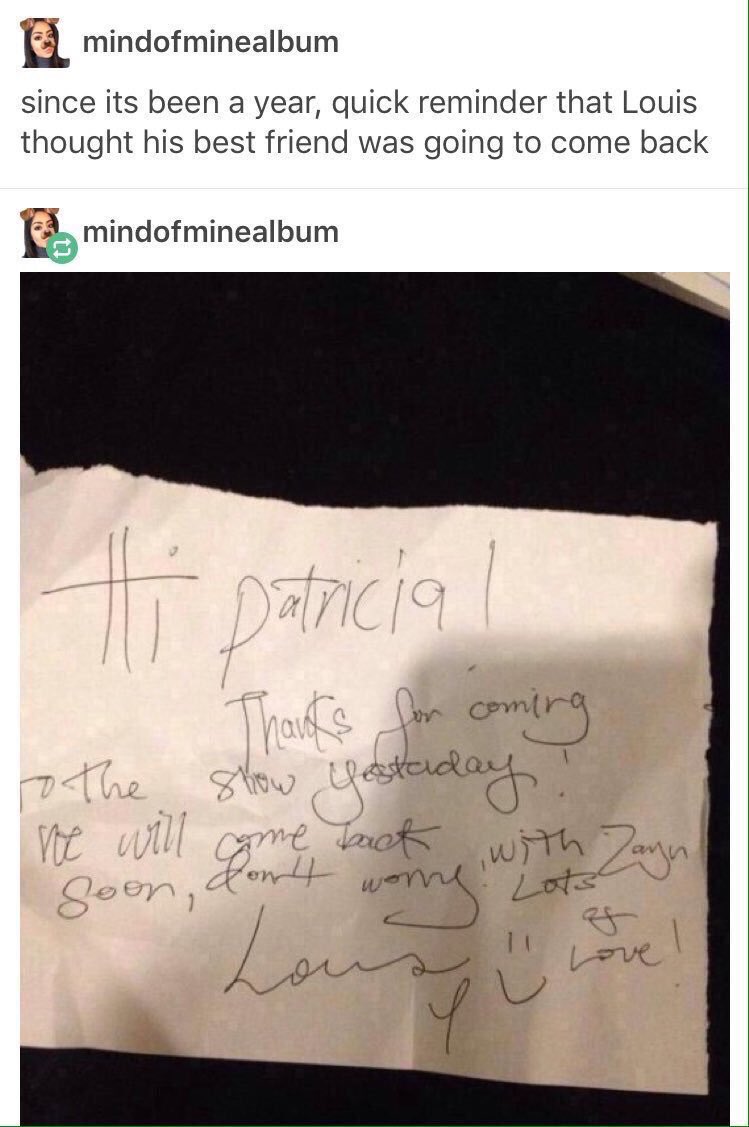 mindofminealbum
since its been a year, quick reminder that Louis
thought his best friend was going to come back
mindofminealbum
Hi patricia!
Thanks for coming
to the show yesterday!
We will come back, with Zayn
soon, don't worry! Lots
of
Louis love!